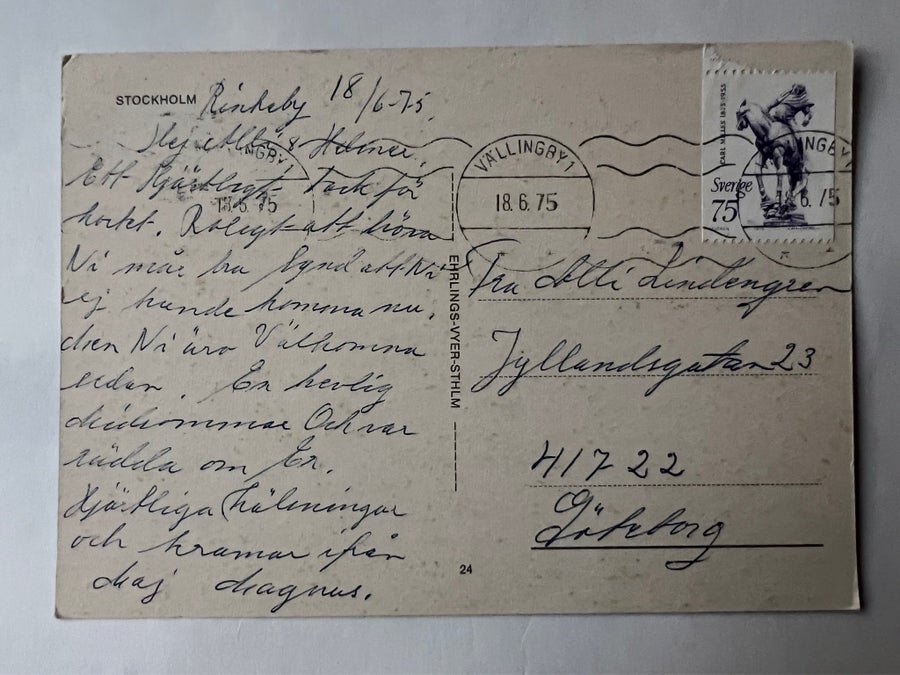 STOCKHOLM
Rinkeby 18/6-75
Hej Atli & Helmer.
Ett Hjärtligt Tack för
kortet. Roligt att höra
Ni mår bra Synd att Ni
ej kunde komma nu,
Men Ni äro Välkomna
sedan. En hevlig
Midsommar Och var
rädda om Er.
Hjärtliga Hälsningar
och kramar ifrån
Maj Magnus.
EHRLINGS-VYER-STHLM
24
NGBY1
18.6.75
VÄLLINGBY 1
18.6.75
NGBY1
8.6.75
CARL MILLES 1875-1955
Sverige
75
Fru Atli Lindengren
Jyllandsgatan 23
417 22
Göteborg